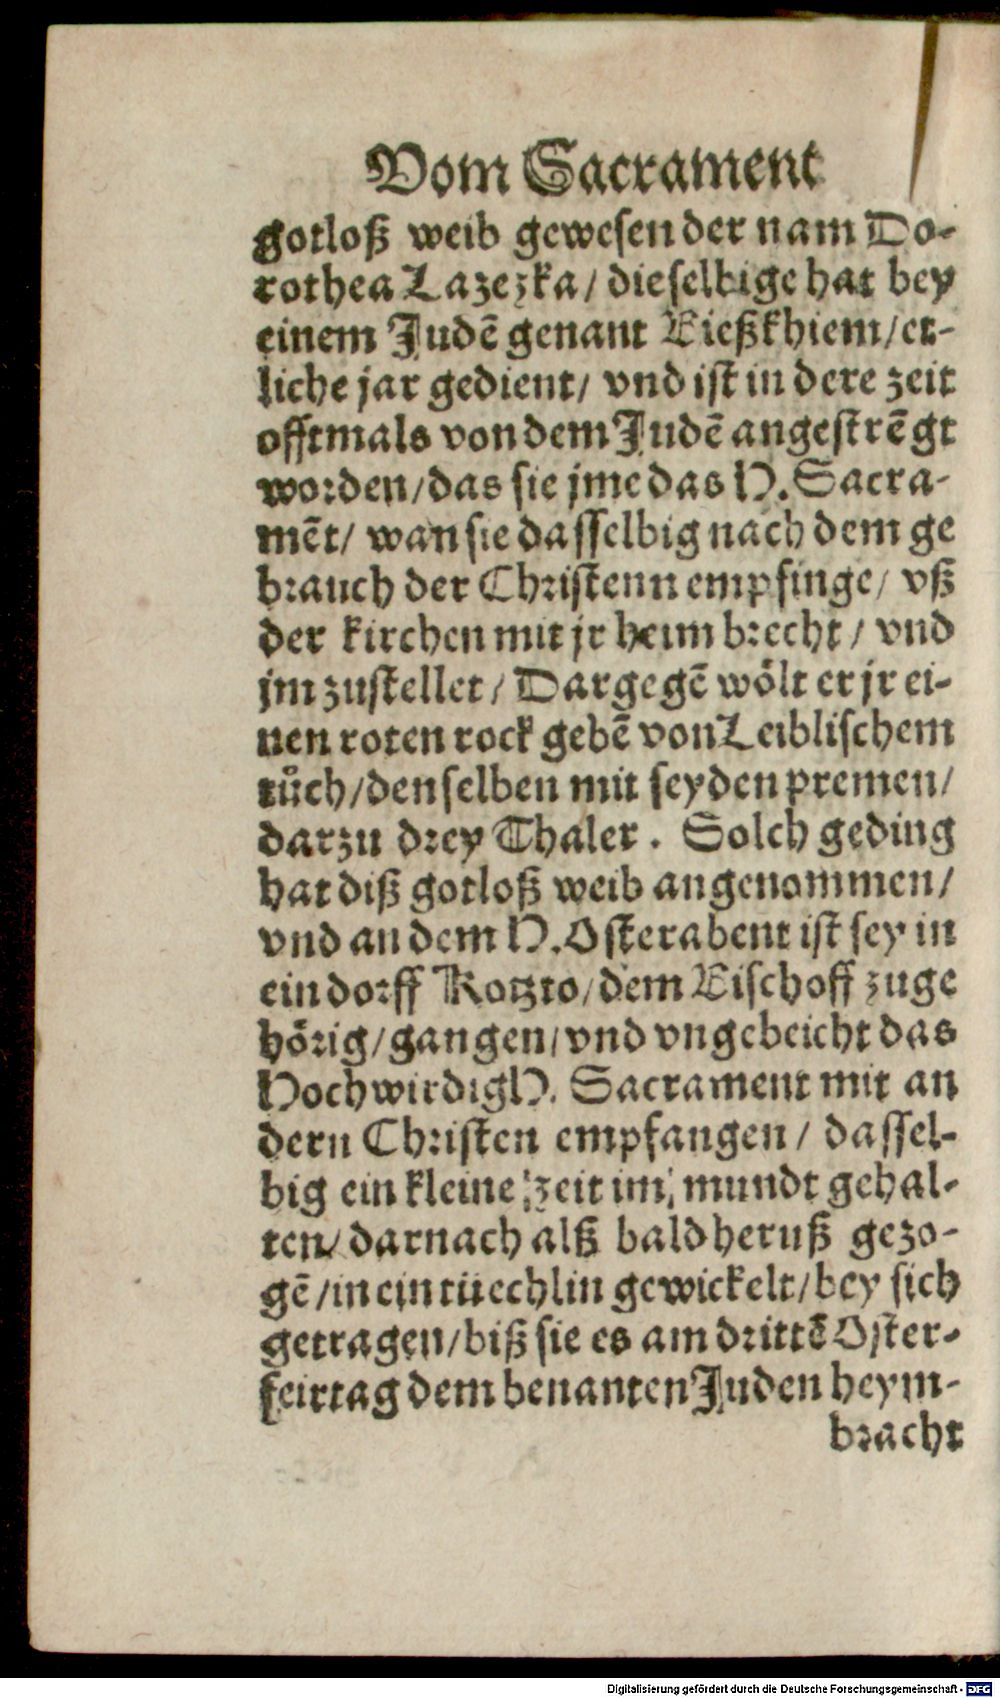 Vom Sacrament
gotloß weib gewesen der nam Do-
rothea Lazezka/ dieselbige hat bey
einem Judē genant Bießkhiem/et-
liche jar gedient/ vnd ist in dere zeit
offtmals von dem Judē angestrēgt
worden/das sie jme das H. Sacra-
mēt/ wan sie dasselbig nach dem ge
brauch der Christenn empfinge/ vß
der kirchen mit jr heim brecht/ vnd
jm zustellet/ Dargegē wölt er jr ei-
nen roten rock gebē von Leiblischem
tůch/denselben mit seyden premen/
darzu drey Thaler. Solch geding
hat diß gotloß weib angenommen/
vnd an dem H. Osterabent ist sey in
ein dorff Kotzto/dem Bischoff zuge
hörig/gangen/vnd vngebeicht das
Hochwirdig H. Sacrament mit an
dern Christen empfangen/ dassel-
big ein kleine zeit im mundt gehal-
ten/ darnach alß bald heruß gezo-
gē/in ein tüechlin gewickelt/bey sich
getragen/biß sie es am drittē Oster-
feirtag dem benanten Juden heym-
bracht
Digitalisierung gefördert durch die Deutsche Forschungsgemeinschaft - DFG